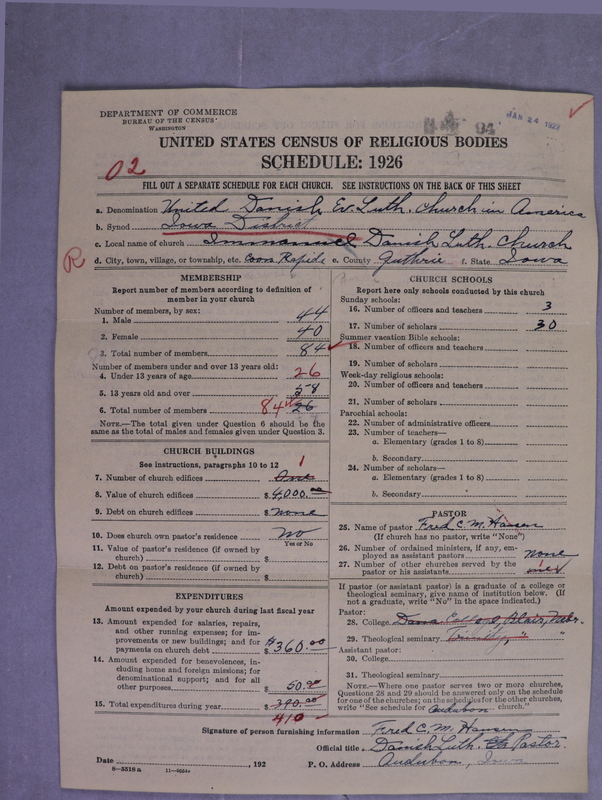 DEPARTMENT OF COMMERCE
BUREAU OF THE CENSUS
WASHINGTON
94
JAN 24 1927
UNITED STATES CENSUS OF RELIGIOUS BODIES
SCHEDULE: 1926
02
FILL OUT A SEPARATE SCHEDULE FOR EACH CHURCH. SEE INSTRUCTIONS ON THE BACK OF THIS SHEET
a. Denomination United Danish Ev. Luth. Church in America
b. Synod Iowa District
c. Local name of church Immanuel Danish Luth. Church
R
d. City, town, village, or township, etc. Coon Rapids e. County Guthrie f. State Iowa
MEMBERSHIP
Report number of members according to definition of
member in your church
Number of members, by sex:
1. Male 44
2. Female 40
3. Total number of members 84
Number of members under and over 13 years old:
4. Under 13 years of age 26
5. 13 years old and over 58
6. Total number of members 84 26
NOTE.—The total given under Question 6 should be the
same as the total of males and females given under Question 3.
CHURCH BUILDINGS
See instructions, paragraphs 10 to 12
1
7. Number of church edifices One
8. Value of church edifices $ 4,000.00
9. Debt on church edifices $ None
10. Does church own pastor's residence No
Yes or No
11. Value of pastor's residence (if owned by
church) $
12. Debt on pastor's residence (if owned by
church) $
EXPENDITURES
Amount expended by your church during last fiscal year
13. Amount expended for salaries, repairs,
and other running expenses; for im-
provements or new buildings; and for
payments on church debt $ 360.00
14. Amount expended for benevolences, in-
cluding home and foreign missions; for
denominational support; and for all
other purposes $ 50.00
15. Total expenditures during year $ 390.00
410
CHURCH SCHOOLS
Report here only schools conducted by this church
Sunday schools:
16. Number of officers and teachers 3
17. Number of scholars 30
Summer vacation Bible schools:
18. Number of officers and teachers
19. Number of scholars
Week-day religious schools:
20. Number of officers and teachers
21. Number of scholars
Parochial schools:
22. Number of administrative officers
23. Number of teachers—
a. Elementary (grades 1 to 8)
b. Secondary
24. Number of scholars—
a. Elementary (grades 1 to 8)
b. Secondary
PASTOR
25. Name of pastor Fred C. M. Hansen
(If church has no pastor, write "None")
26. Number of ordained ministers, if any, em-
ployed as assistant pastors None
27. Number of other churches served by the
pastor or his assistants one
If pastor (or assistant pastor) is a graduate of a college or
theological seminary, give name of institution below. (If
not a graduate, write "No" in the space indicated.)
Pastor:
28. College Dana College, Blair, Nebr.
29. Theological seminary Trinity, " "
Assistant pastor:
30. College
31. Theological seminary
NOTE.—Where one pastor serves two or more churches,
Questions 28 and 29 should be answered only on the schedule
for one of the churches; on the schedules for the other churches,
write "See schedule for Audubon church."
Signature of person furnishing information Fred C. M. Hansen
Official title Danish Luth. Pastor.
Date , 192
P. O. Address Audubon, Iowa
8—5518a